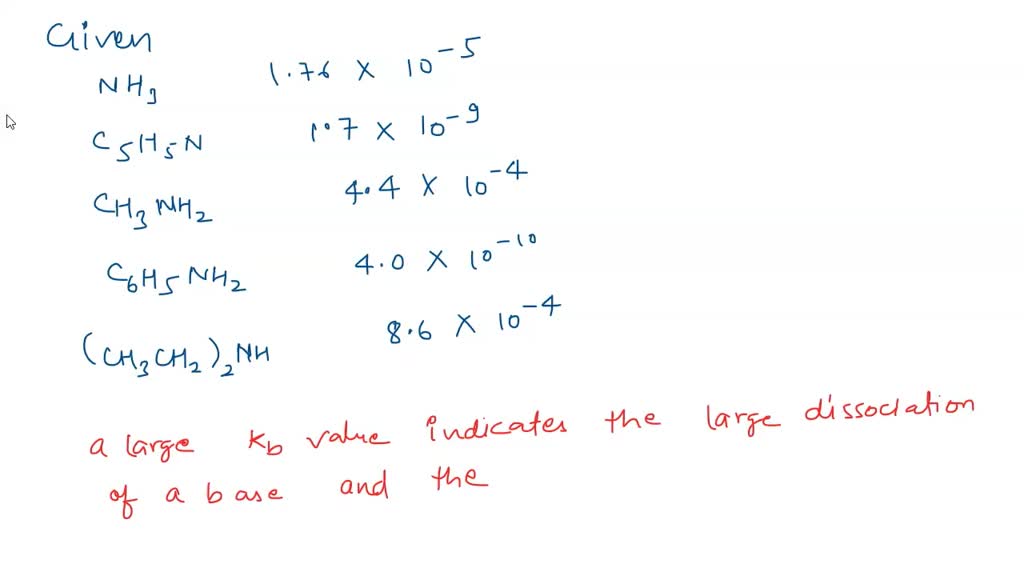 Given
NH3 1.76 × 10^-5
C5H5N 1.7 × 10^-9
CH3NH2 4.4 × 10^-4
C6H5NH2 4.0 × 10^-10
(CH3CH2)2NH 8.6 × 10^-4
a large Kb value indicates the large dissociation
of a base and the